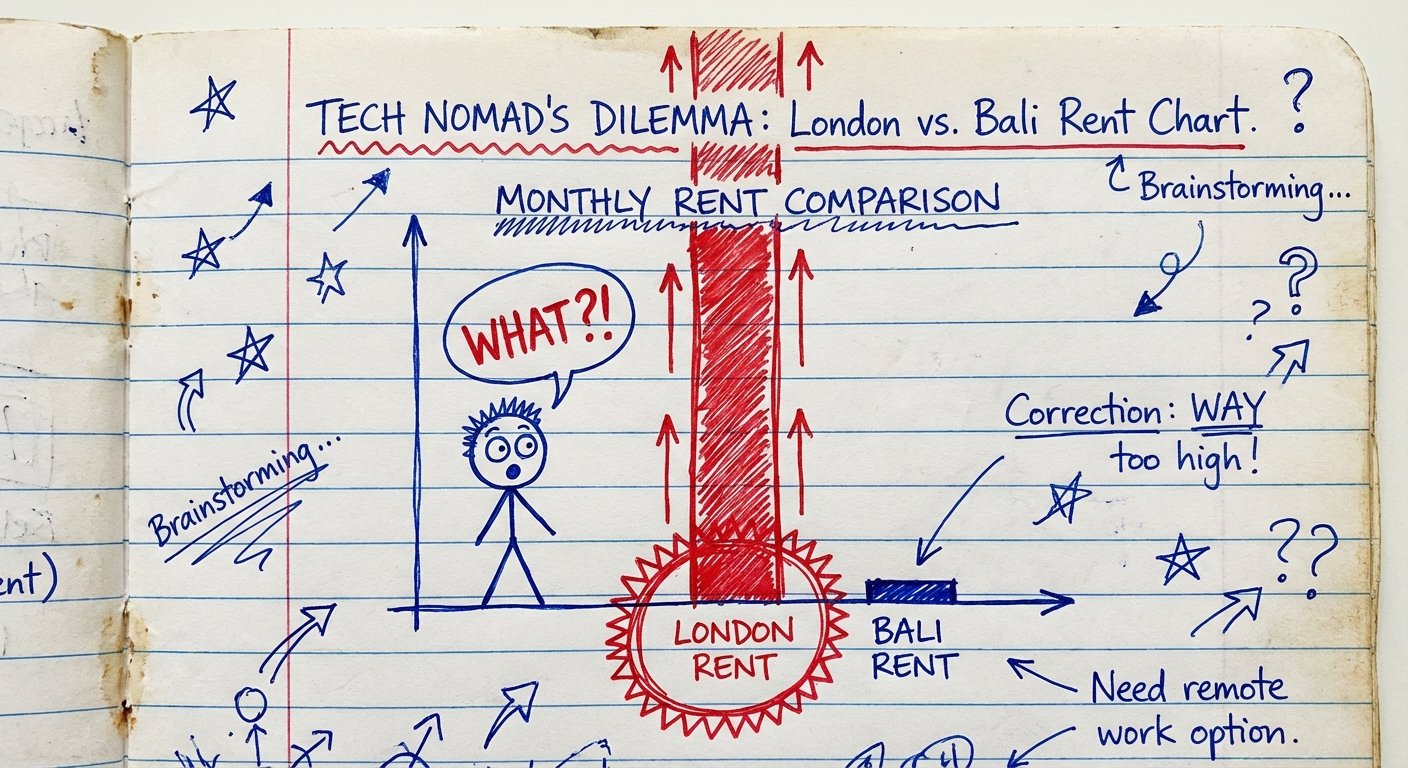 TECH NOMAD'S DILEMMA: London vs. Bali Rent Chart. ?
Brainstorming...
MONTHLY RENT COMPARISON
WHAT?!
?
?
Correction: WAY
too high!
Brainstorming...
??
ent)
LONDON
RENT
BALI
RENT
Need remote
work option.